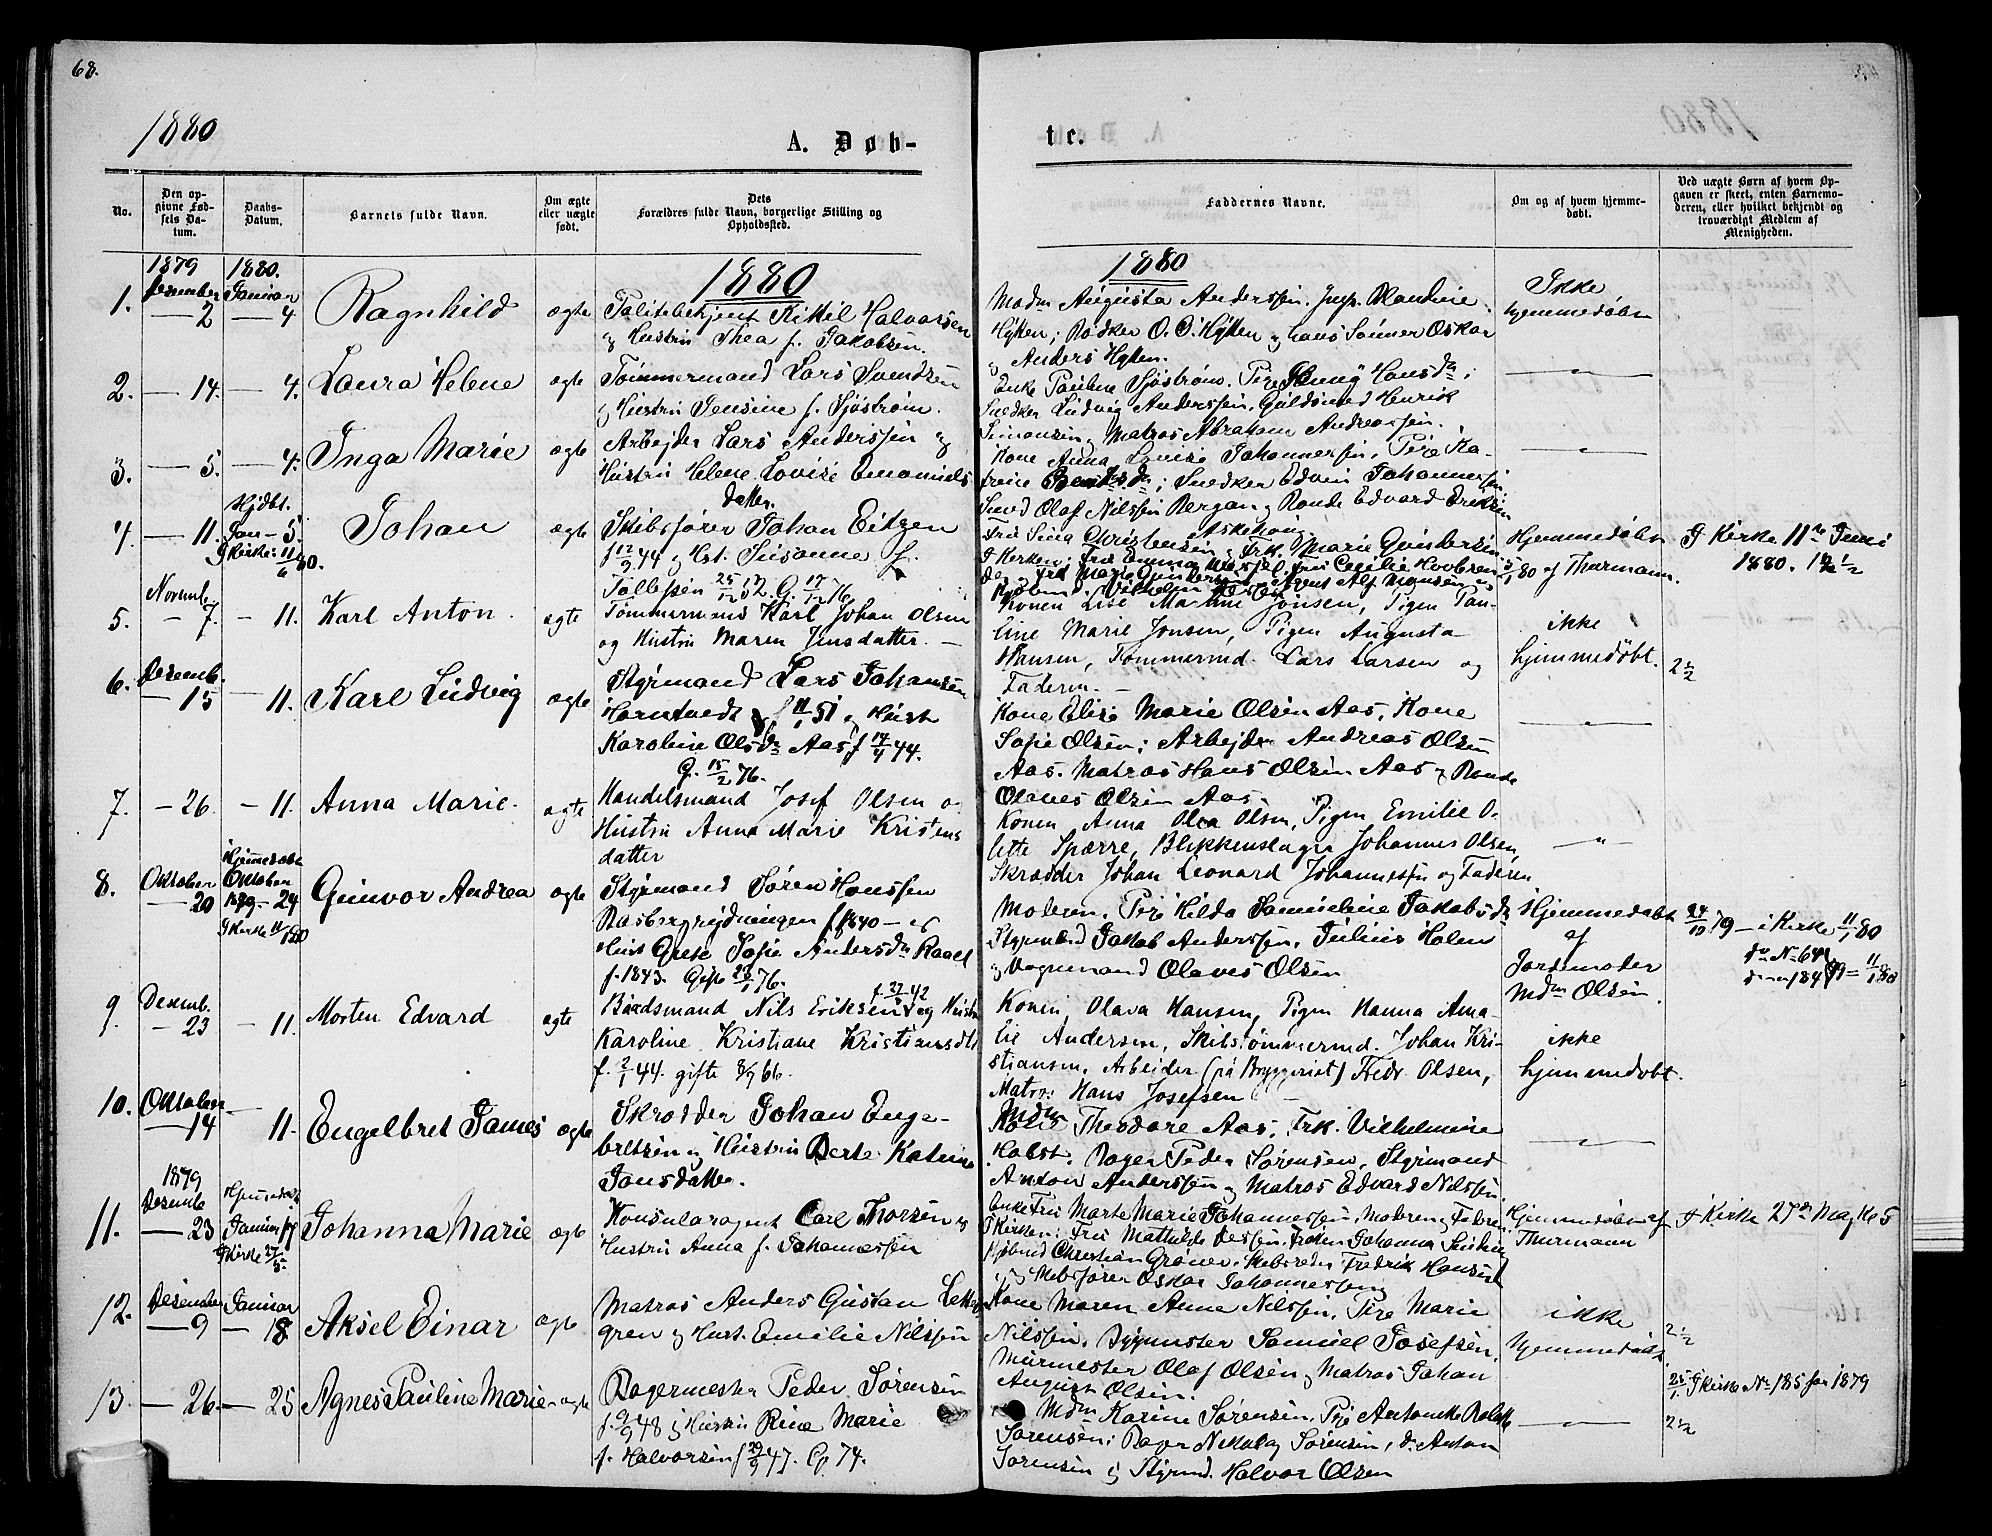 68.
1880
A. Døb-
te.
No.
Den opgivne Fødsels Datum.
Daabs-Datum.
Barnets fulde Navn.
Om ægte eller uægte født.
Dets Forældres fulde Navn, borgerlige Stilling og Opholdssted.
Faddernes Navne.
Om og af hvem hjemmedøbt.
Ved uægte Børn af hvem Opgaven er skeet, enten Barnemoderen, eller hvilket bekjendt og troværdigt Medlem af Menigheden.
1879 1880.
1880
1880
1. Desember 2 Januar 4 Ragnhild ægte
Politebetjent Kittil Halvorsen
og Hustru Thea f. Jakobsen.
Madm Augusta Anderssen. Jmfr. Blandine
Hytten; Bødker O. O. Hytten og hans Sønner Oskar
og Anders Hytten.
Ikke
hjemmedøbt
2. — 14. — 4. Laura Helene ægte
Tømmermand Lars Svendsen
og Hustru Jensine f. Sjøstrøm.
Enke Pauline Sjøstrøm. Pige Jenny Hansdr;
Snedker Ludvig Anderssen. Guldsmed Henrik
Simonsen og Matros Abraham Andreassen.
3. — 5. — 4. Inga Marie ægte
Arbejder Lars Anderssen og
Hustru Helene Lovise Emanuels
datter.
Kone Anna Lovise Johannessen, Pige Ka-
trine; Snedker Edvin Johannessen;
Smed Olaf Nilssen Bergan og Bonde Edvard Eriksen
Askehoug
4. — 11. Hjdbt. Jan – 5. I Kirke: 11/6 80. Johan ægte
Skibsfører Johan Eitzen
f 12/9 44 og Hst. Susanne f.
Tollefsen 25/12 52. G. 17/12 76
Fru Sina Christensen og Frk. Marie Gundersen
Hjemmedøbt
5/1 80 af Thurmann.
I Kirke 11te Juni
1880. 12 1/2
5. Novemb. – 7. – 11. Karl Anton. ægte
Tømmermand Karl Johan Olsen
og Hustru Maren Jensdatter. —
Konen Lise Martine Jonsen, Pigen Pau-
line Marie Jonsen, Pigen Augusta
Hansen, Tømmermd. Lars Larsen og
Faderen. —
ikke
hjemmedøbt.
2 1/2
6. Desemb. — 15 — 11. Karl Ludvig ægte
Styrmand Lars Johansen
Horntvedt f 11/1 51 og Hustr
Karoline Olsdr Aas f 14/4 44.
G. 15/2 76.
Kone Elise Marie Olsen Aas. Kone
Sofie Olsen; Arbejder Andreas Olsen
Aas. Matros Hans Olsen Aas og Bonde
Olaves Olsen Aas.
7. – 26. – 11. Anna Marie. ægte
Handelsmand Josef Olsen og
Hustru Anna Marie Kristens
datter
Konen Anna Olea Olsen, Pigen Emilie O-
lette Spærre, Blikkenslager Johannes Olsen,
Skrædder Johan Leonard Johannessen og Faderen
8. Oktober — 20 Hjemmedøbt Oktober 1879 – 24 I Kirke 11/1 80 Gunvor Andrea ægte
Styrmand Søren Hanssen
Basbergrydningen f. 1840 – og
Hust Grete Sofie Andersdr Raael
f. 1843. Gift 23/1 76.
Moderen. Pige Hilda Samueline Jakobsdr
Styrmand Jakob Anderssen. Julius Holm
og Vognmand Olaves Olsen
Hjemmedøbt
af
Jordemoder
Mdm Olsen.
24/10 79 – i Kirke 11/1 80
9. Desemb. – 23 – 11. Morten Edvard ægte
f. 27/8 42
Baadsmand Nils Eriksen og Hustru
Karoline Kristiane Kristensdt
f. 2/1 44. gifte 8/9 66.
Konen Olava Hansen, Pigen Hanna Ama-
lie Andersen, Skibstømmermd. Johan Kri-
stiansen, Arbeider (på Bryggeriet) Fredr Olsen,
Matros Hans Josefsen —
ikke
hjemmedøbt.
10. Oktober — 14 — 11. Engelbret James ægte
Skrædder Johan Enge-
bretsen og Hustru Berte Katrine
Jonsdatter.
Mdm Theodore Aas. Frk. Vilhelmine
Holst. Bager Peder Sørensen. Styrmand
Anton Anderssen og Matros Edvard Nilssen
11. 1879 Desemb — 23 Januar I Kirke 27/5 Johanna Marie ægte
Konsularagent Carl Thorsen og
Hustru Anna f. Johannessen
Enkefru Marte Marie Johannessen, Moderen og Faderen
I Kirken: Fru Mathilde Jessen. Frøken Johanna
Christian Grøner. Skibsreder Fredrik Hansen
og Skibsfører Oskar Johannessen
Hjemmedøbt af
Thurmann
I Kirke 27de Maj
12. Desember — 9 Januar — 18 Aksel Einar ægte
Matros Anders Gustav Letter-
gren og Hust. Emilie Nilssen
Kone Maren Anne Nilssen. Pige Marie
Nilssen. Bygmester Samuel Josefsen.
Murmester Olaf Olsen og Matros Johan
August Olsen.
ikke
hjemmedøbt
2 1/2
13. — 26. — 25 Agnes Pauline Marie ægte
Bagermester Peder Sørensen
f. 9/9 48 og Hustru Rine Marie
f. Halvorsen f 29/9 47. G 74.
Mdm Karine Sørensen. Pige Antonette
Sørensen; Bager Nikolaj Sørensen, do Anton
Sørensen og Styrmd. Halvor Olsen
25/1 I Kirke No 185 for 1879
2 1/2